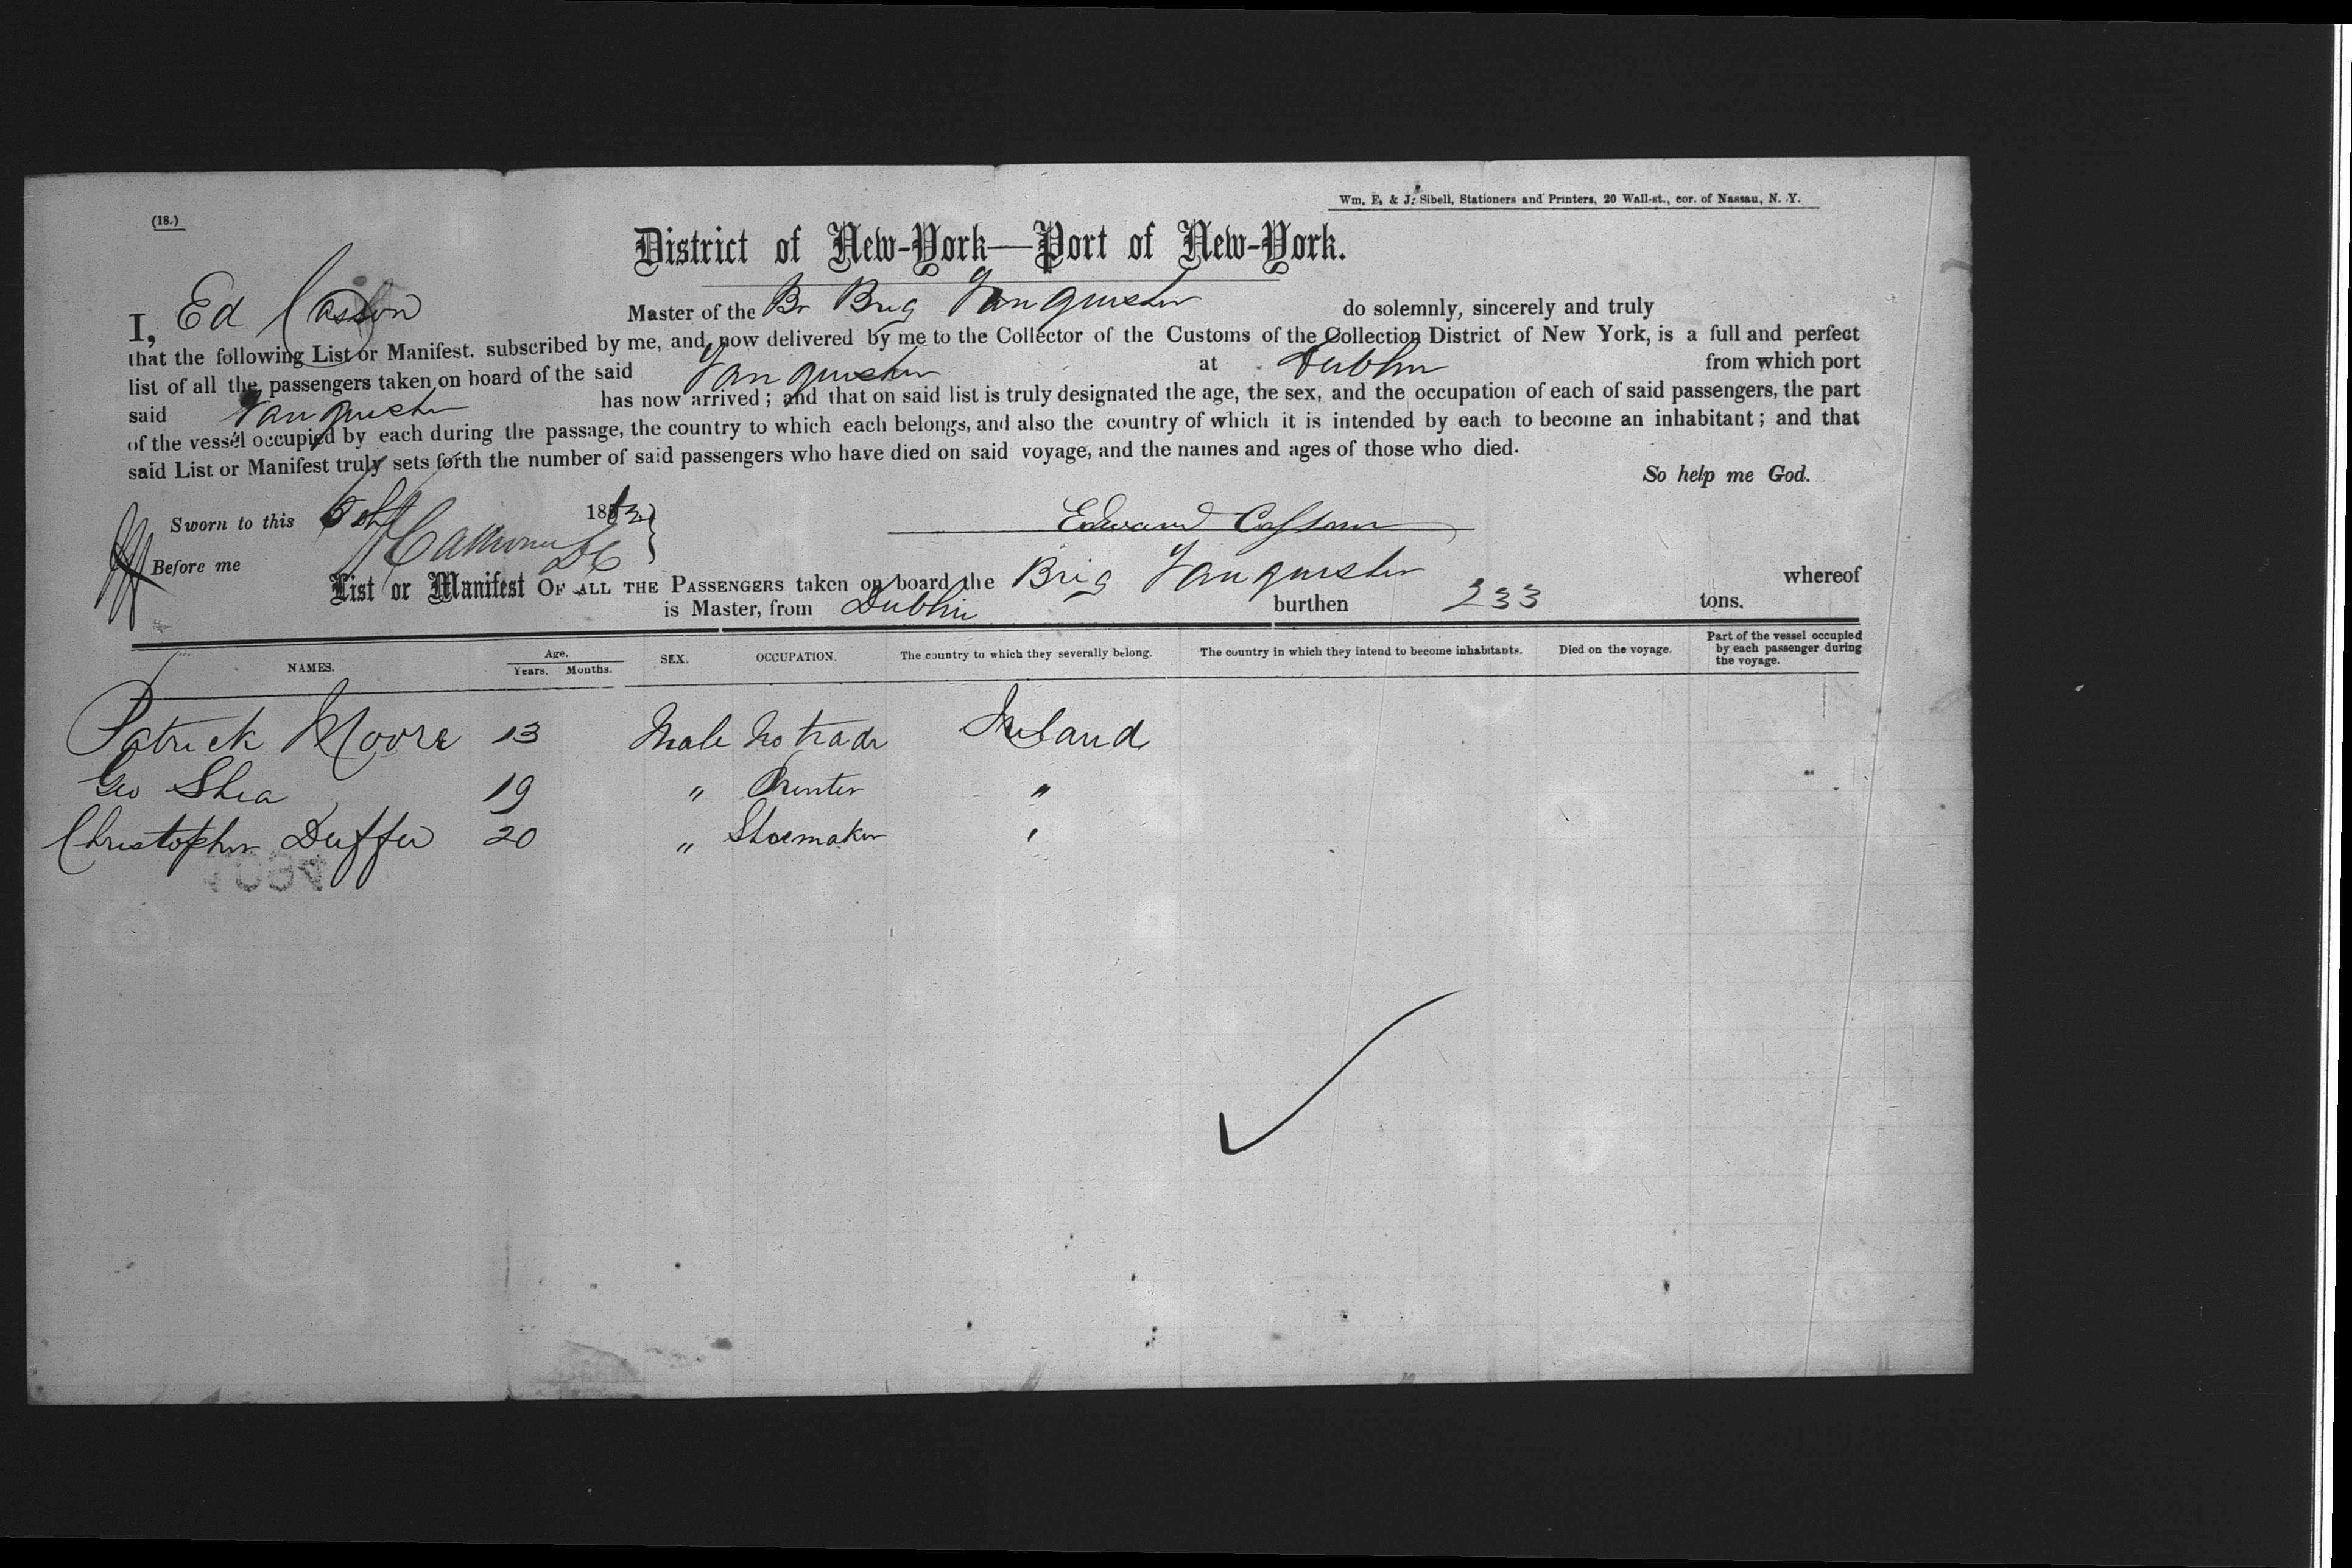 (18.)
Wm. E. & J. Sibell, Stationers and Printers, 20 Wall-st., cor. of Nassau, N. Y.
District of New-York—Port of New-York.
I, Ed Casson Master of the Br Brig Vanquisher do solemnly, sincerely and truly
that the following List or Manifest. subscribed by me, and now delivered by me to the Collector of the Customs of the Collection District of New York, is a full and perfect
list of all the passengers taken on board of the said Vanquisher at Dublin from which port
said Vanquisher has now arrived; and that on said list is truly designated the age, the sex, and the occupation of each of said passengers, the part
of the vessel occupied by each during the passage, the country to which each belongs, and also the country of which it is intended by each to become an inhabitant; and that
said List or Manifest truly sets forth the number of said passengers who have died on said voyage, and the names and ages of those who died.
So help me God.
Sworn to this 18 Edward Casson
Before me
List or Manifest OF ALL THE PASSENGERS taken on board the Brig Vanquisher whereof
is Master, from Dublin burthen 233 tons.
NAMES. Age. Years. Months. SEX. OCCUPATION. The country to which they severally belong. The country in which they intend to become inhabitants. Died on the voyage. Part of the vessel occupied by each passenger during the voyage.
Patrick Moore 13 Male No trade Ireland
Geo Shea 19 " Printer "
Christopher Duffer 20 " Shoemaker "